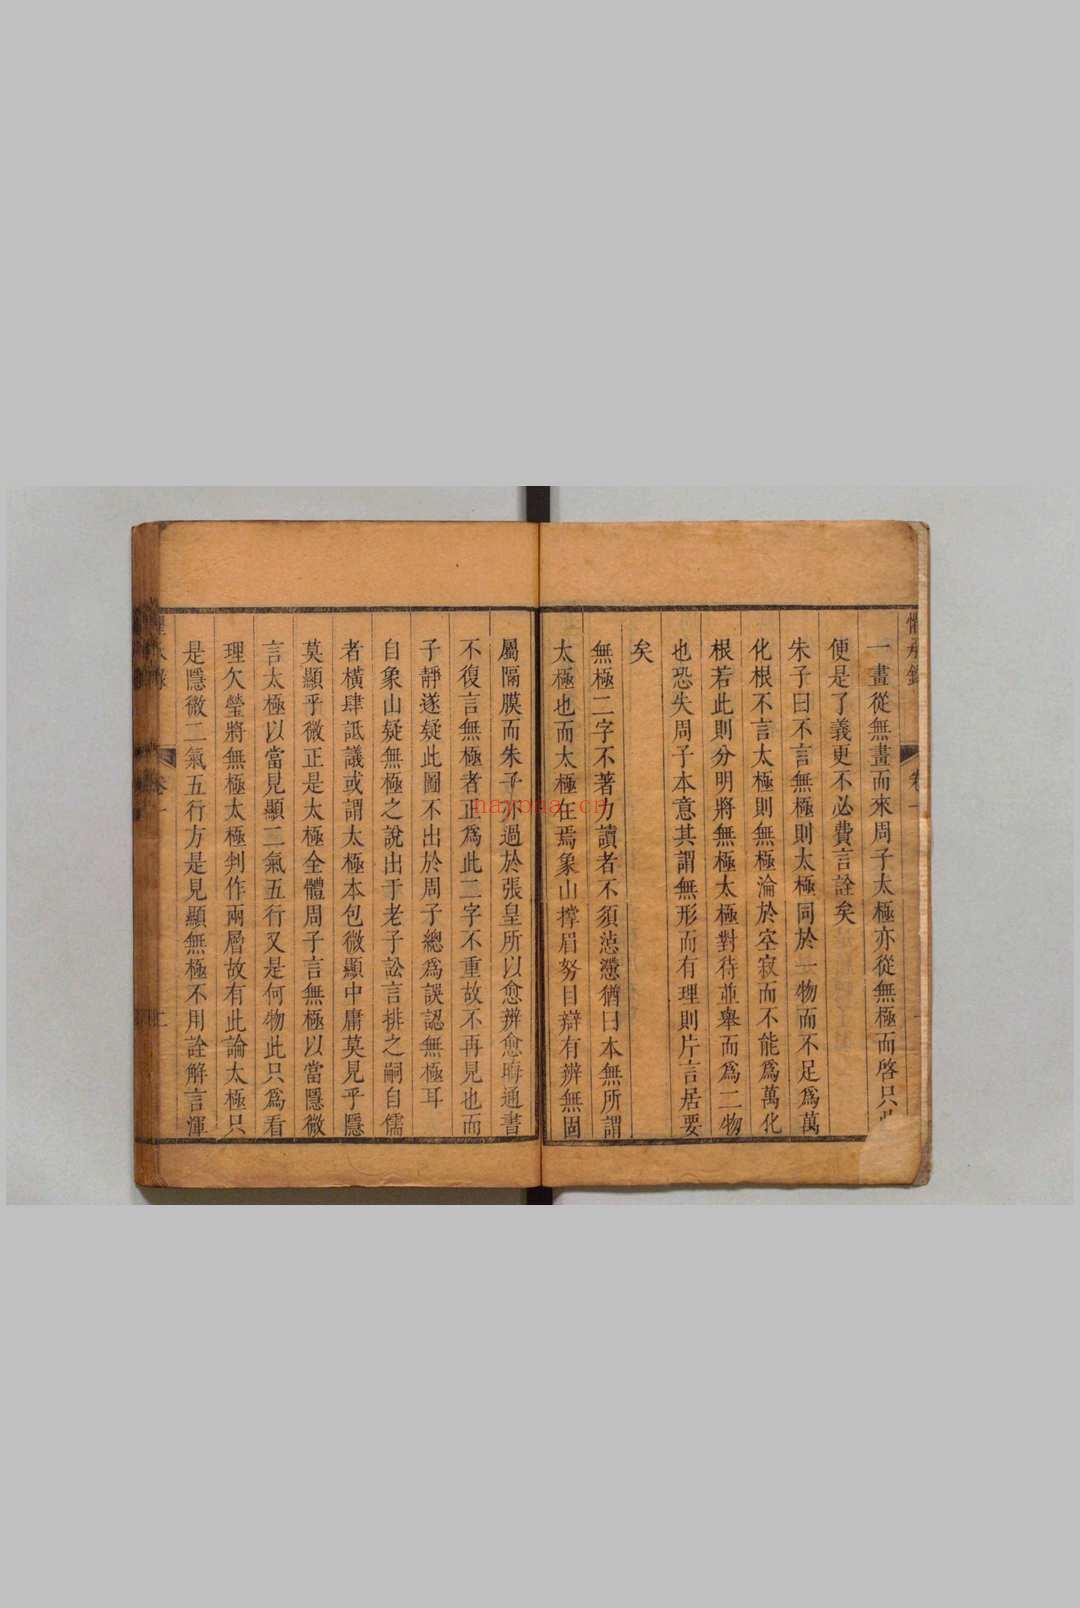 一畫從無畫而來周子太極亦從無極而啓只此
便是了義更不必費言詮矣
朱子曰不言無極則太極同於一物而不足爲萬
化根不言太極則無極淪於空寂而不能爲萬化
根若此則分明將無極太極對待並舉而爲二物
也恐失周子本意其謂無形而有理則片言居要
矣
無極二字不著力讀者不須慫慂猶曰本無所謂
太極也而太極在焉象山撐眉努目辯有辨無固
屬隔膜而朱子亦過於張皇所以愈辨愈晦通書
不復言無極者正爲此二字不重故不再見也而
子靜遂疑此圖不出於周子總爲誤認無極耳
自象山疑無極之說出于老子訟言排之嗣自儒
者橫肆詆議或謂太極本包微顯中庸莫見乎隱
莫顯乎微正是太極全體周子言無極以當隱微
言太極以當見顯二氣五行又是何物此只爲看
理欠瑩將無極太極判作兩層故有此論太極只
是隱微二氣五行方是見顯無極不用詮解言渾
卷一
nayona.cn